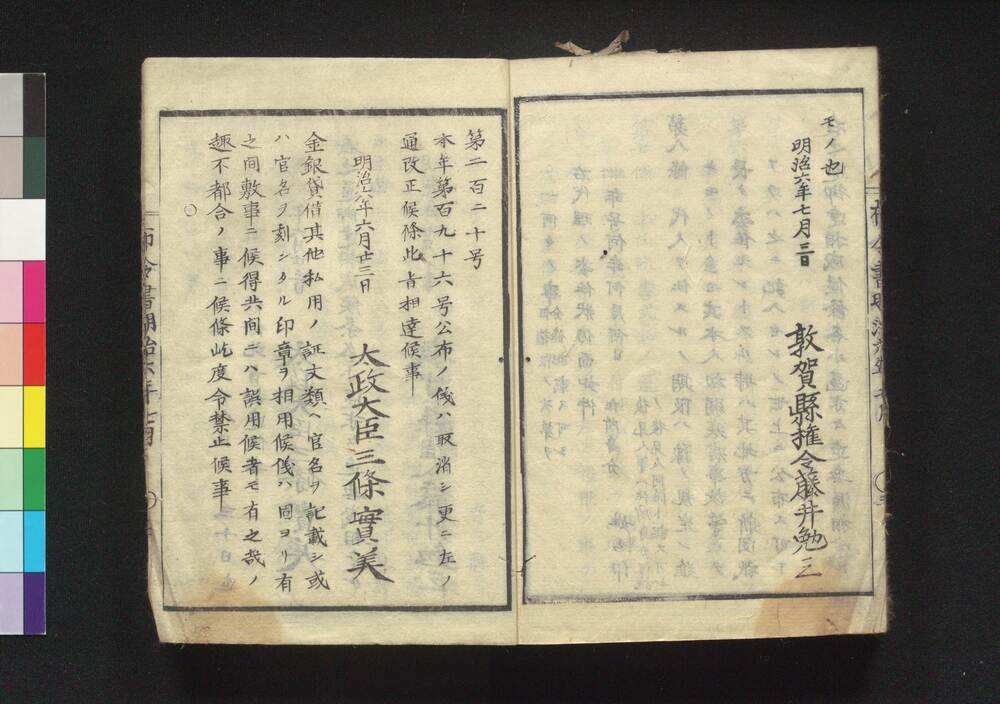 モノ也
明治六年七月三日
敦賀縣権令藤井勉三
第二百二十号
本年第百九十六号公布ノ儀ハ取消シ更ニ左ノ
通改正候條此旨相達候事
明治六年六月廿三日
太政大臣三條實美
金銀貸借其他私用ノ証文類ヘ官名ヲ記載シ或
ハ官名ヲ刻シタル印章ヲ相用候儀ハ固ヨリ有
之間敷事ニ候得共間ニハ誤用候者モ有之哉ノ
趣不都合ノ事ニ候條屹度令禁止候事
○